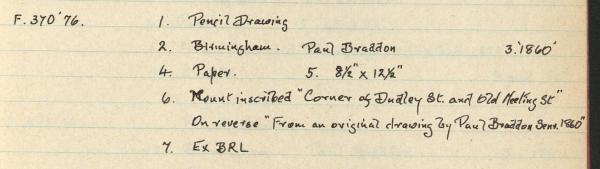 F.370'76. 1. Pencil Drawing
2. Birmingham. Paul Braddon 3.'1860'
4. Paper. 5. 8½" x 12½"
6. Mount inscribed "Corner of Dudley St. and Old Meeting St"
On reverse "From an original drawing by Paul Braddon Senr. 1860"
7. Ex BRL